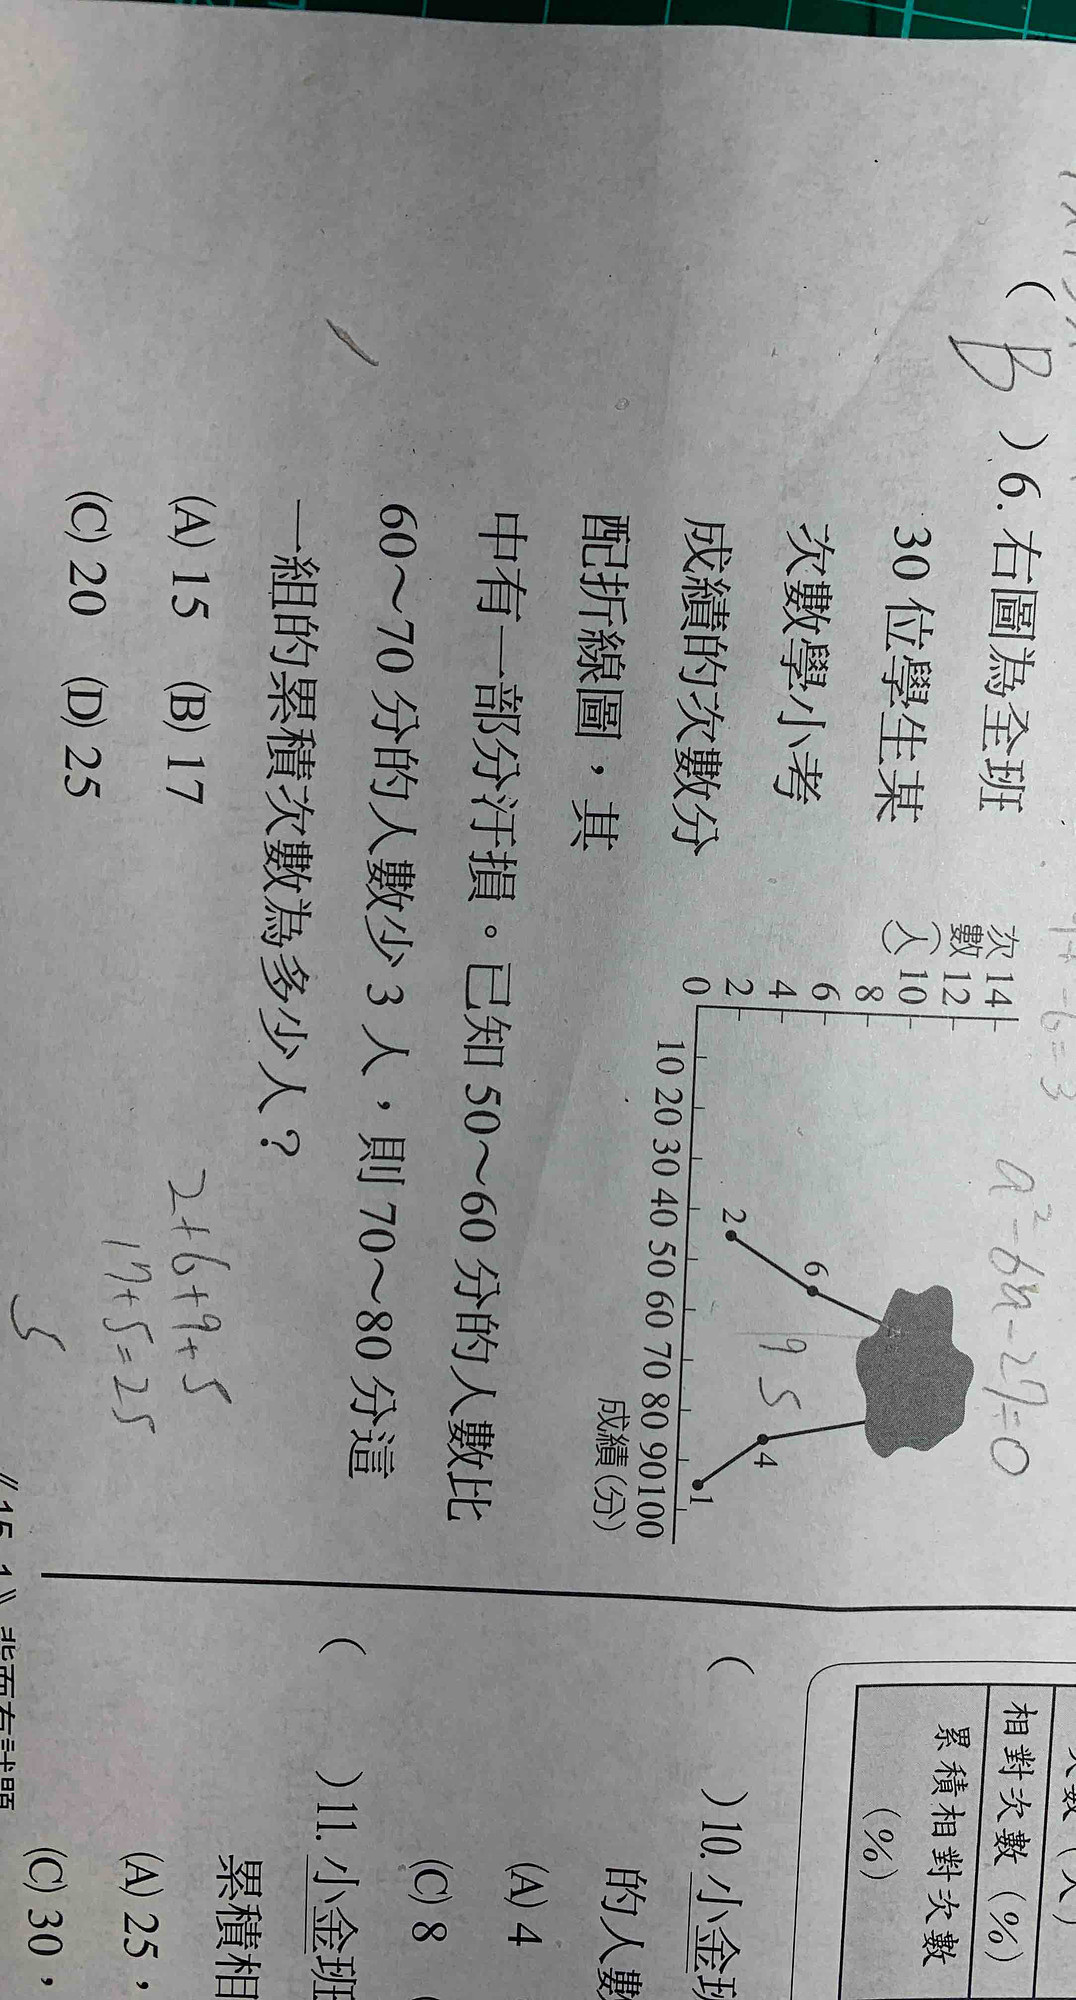 ( B ) 6. 右圖為全班
30 位學生某
次數學小考
成績的次數分
配折線圖，其
中有一部分汙損。已知 50～60 分的人數比
60～70 分的人數少 3 人，則 70～80 分這
一組的累積次數為多少人？
(A) 15 (B) 17
(C) 20 (D) 25
次數(人)
14
12
10
8
6
4
2
0
10 20 30 40 50 60 70 80 90 100
成績(分)
2
6
4
1
9 5
a²-6a-27=0
-6=3
2+6+9+5
17+5=25
5
相對次數（%）
累積相對次數
（%）
( ) 10. 小金班
的人數
(A) 4
(C) 8
( ) 11. 小金班
累積相
(A) 25，
(C) 30，